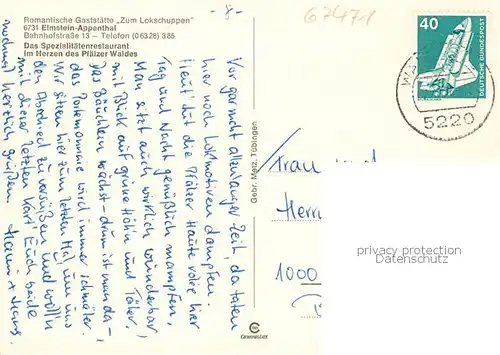 Romantische Gaststätte „Zum Lokschuppen"
6731 Elmstein-Appenthal
Bahnhofstraße 13 – Telefon (06328) 385
Das Spezialitätenrestaurant
im Herzen des Pfälzer Waldes
67471
40
DEUTSCHE BUNDESPOST
5220
Vor gar nicht allzulanger Zeit, da taten
hier noch Lokomotiven dampfen.
Heut tut die Pfälzer Haute volée hier
Tag und Nacht genüßlich mampfen,
Man sitzt auch wirklich wunderbar,
mit Blick auf grüne Höhn und Täler.
Das Bäuchlein wächst – drum ist man da,
das Portemonnaie wird immer schmäler.
Wir sitzen hier zum letzten Mal, um uns
den Abschied zu versüßen und woll'n
mit dieser letzten Kart' Euch beide
nochmal herzlich grüßen.
Gebr. Metz, Tübingen
Frau und
Herrn
1000
privacy protection
Datenschutz